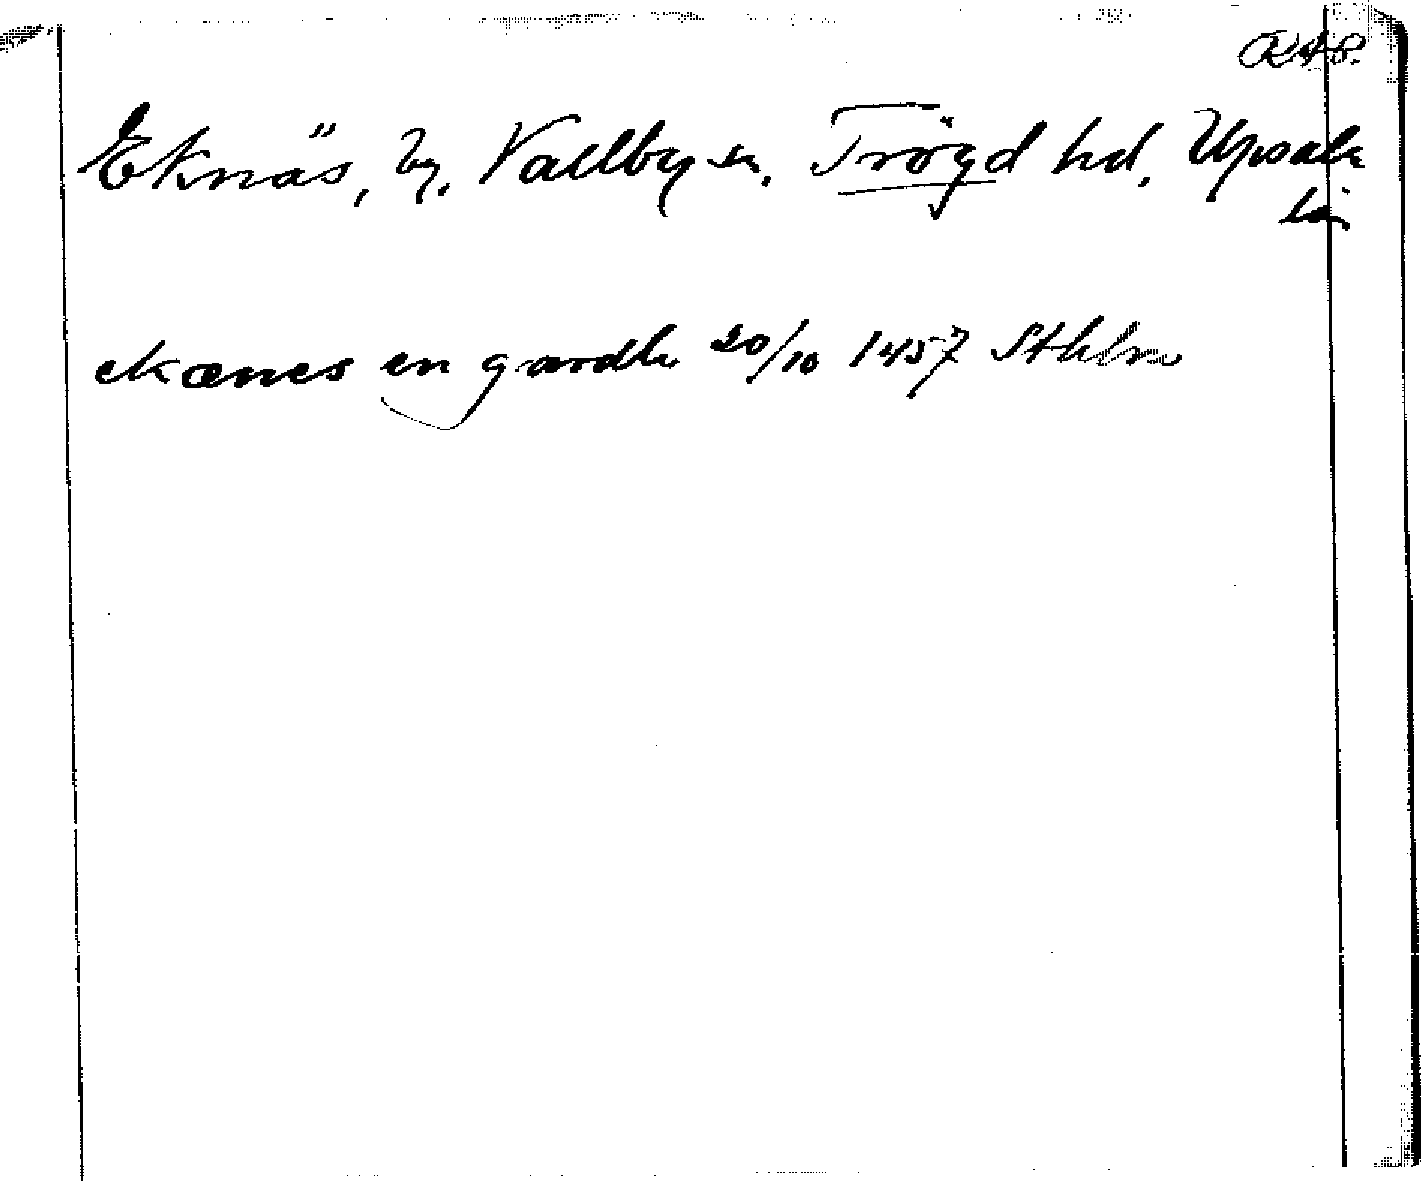 Eknäs, by, Vallby sn, Trögd hd, Upsala
län
ekænes en gardh 20/10 1457 Sthlm